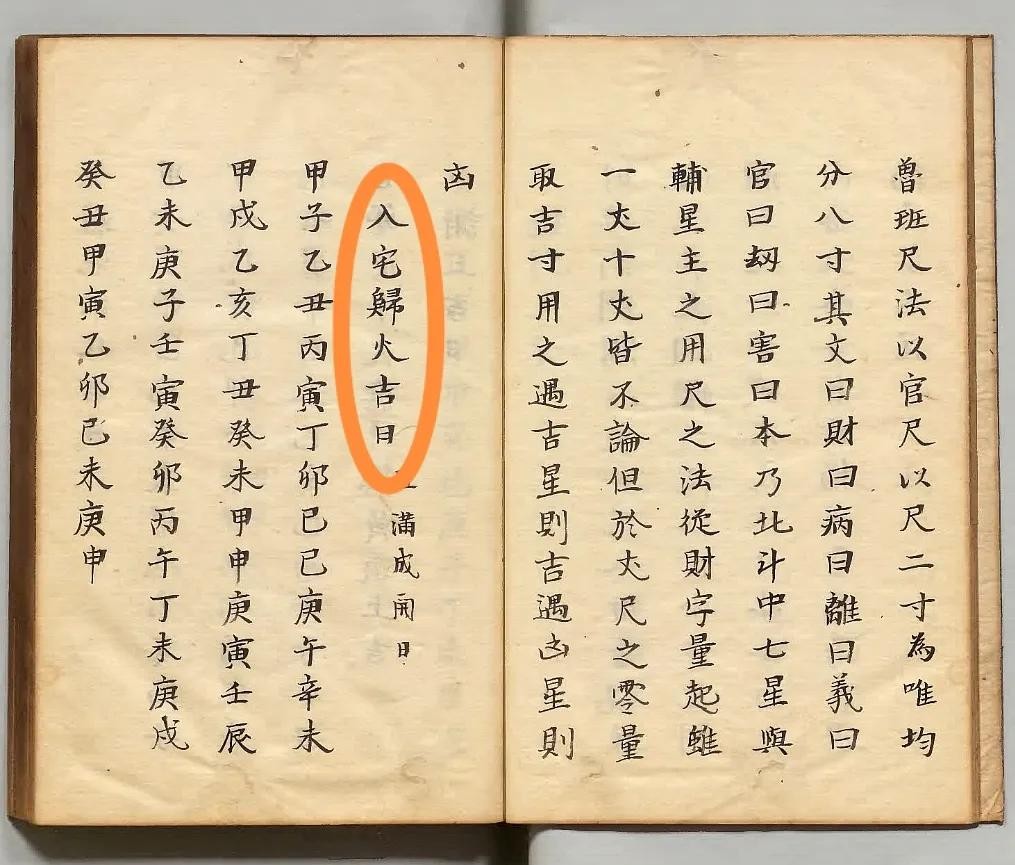 魯班尺法以官尺以尺二寸為唯均
分八寸其文曰財曰病曰離曰義曰
官曰刼曰害曰本乃北斗中七星與
輔星主之用尺之法從財字量起雖
一丈十丈皆不論但於丈尺之零量
取吉寸用之遇吉星則吉遇凶星則
凶
入宅歸火吉日 滿成開日
甲子乙丑丙寅丁卯己巳庚午辛未
甲戌乙亥丁丑癸未甲申庚寅壬辰
乙未庚子壬寅癸卯丙午丁未庚戌
癸丑甲寅乙卯己未庚申